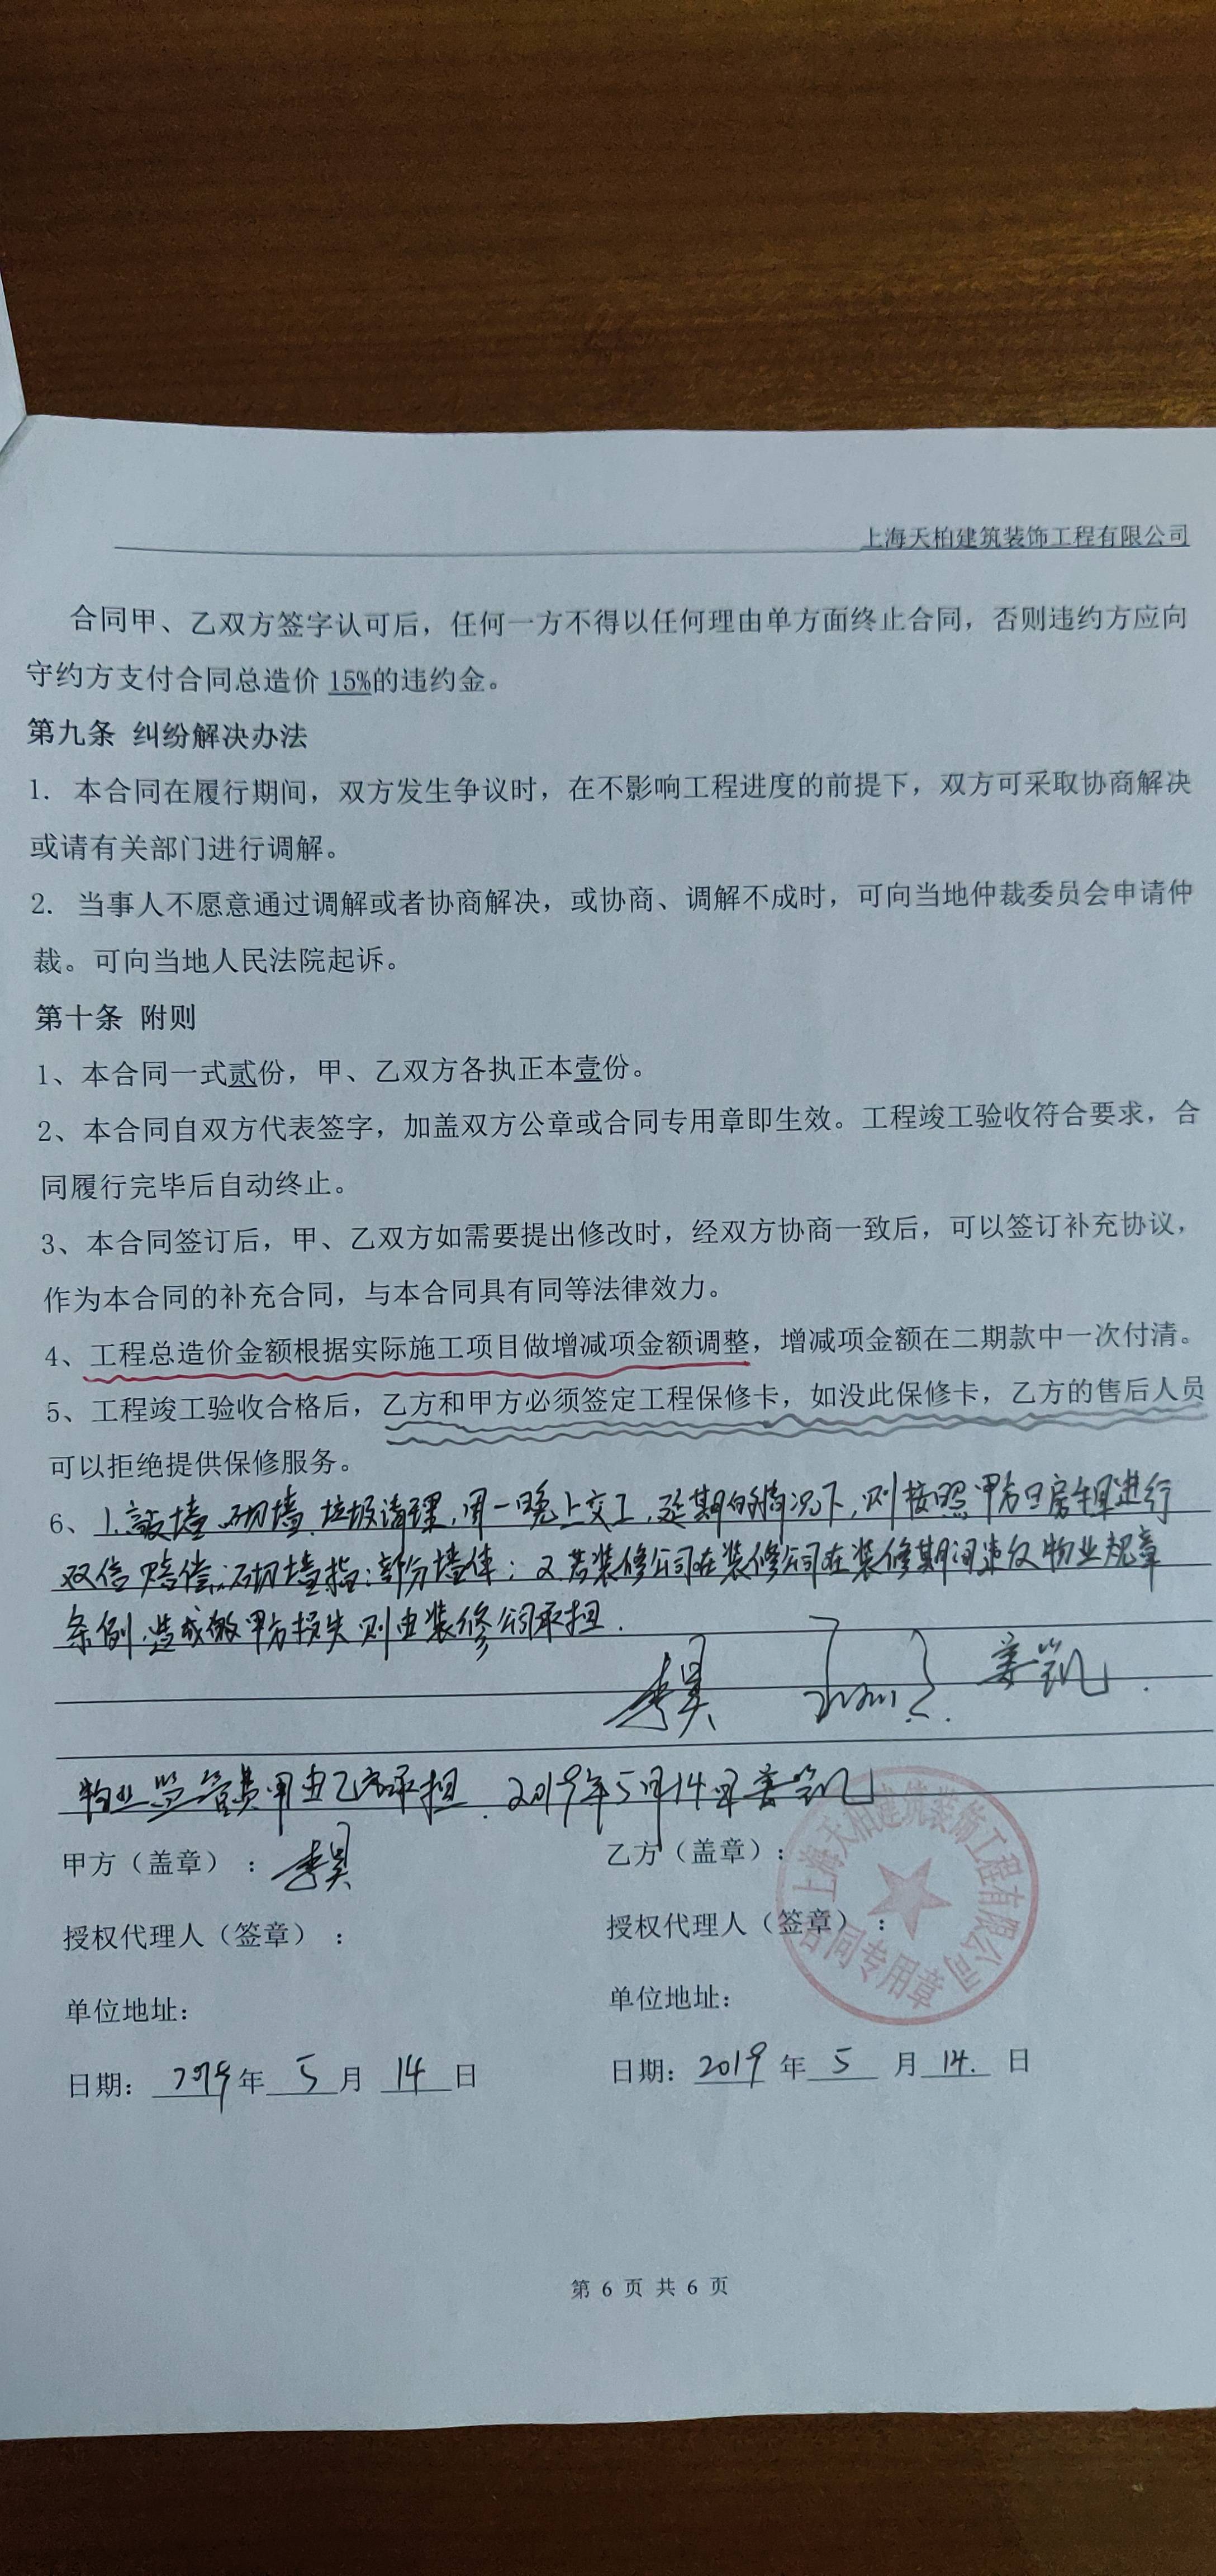 上海天柏建筑装饰工程有限公司
合同甲、乙双方签字认可后，任何一方不得以任何理由单方面终止合同，否则违约方应向
守约方支付合同总造价 15%的违约金。
第九条 纠纷解决办法
1. 本合同在履行期间，双方发生争议时，在不影响工程进度的前提下，双方可采取协商解决
或请有关部门进行调解。
2. 当事人不愿意通过调解或者协商解决，或协商、调解不成时，可向当地仲裁委员会申请仲
裁。可向当地人民法院起诉。
第十条 附则
1、本合同一式贰份，甲、乙双方各执正本壹份。
2、本合同自双方代表签字，加盖双方公章或合同专用章即生效。工程竣工验收符合要求，合
同履行完毕后自动终止。
3、本合同签订后，甲、乙双方如需要提出修改时，经双方协商一致后，可以签订补充协议，
作为本合同的补充合同，与本合同具有同等法律效力。
4、工程总造价金额根据实际施工项目做增减项金额调整，增减项金额在二期款中一次付清。
5、工程竣工验收合格后，乙方和甲方必须签定工程保修卡，如没此保修卡，乙方的售后人员
可以拒绝提供保修服务。
6、1.敲墙、砌墙、垃圾清理，周一晚上交工，延期的情况下，则按照甲方日房租进行
双倍赔偿，砌墙指：部分墙体；2.若装修公司在装修公司在装修期间违反物业规章
条例，造成做甲方损失则由装修公司承担.
李昊 姜凯
物业监管费用由乙方承担. 2019年5月14日 姜凯
甲方（盖章）：李昊 乙方（盖章）：
授权代理人（签章）： 授权代理人（签章）：
单位地址： 单位地址：
日期：2019年 5 月 14 日 日期：2019 年 5 月 14. 日
上海天柏建筑装饰工程有限公司
合同专用章
第 6 页 共 6 页